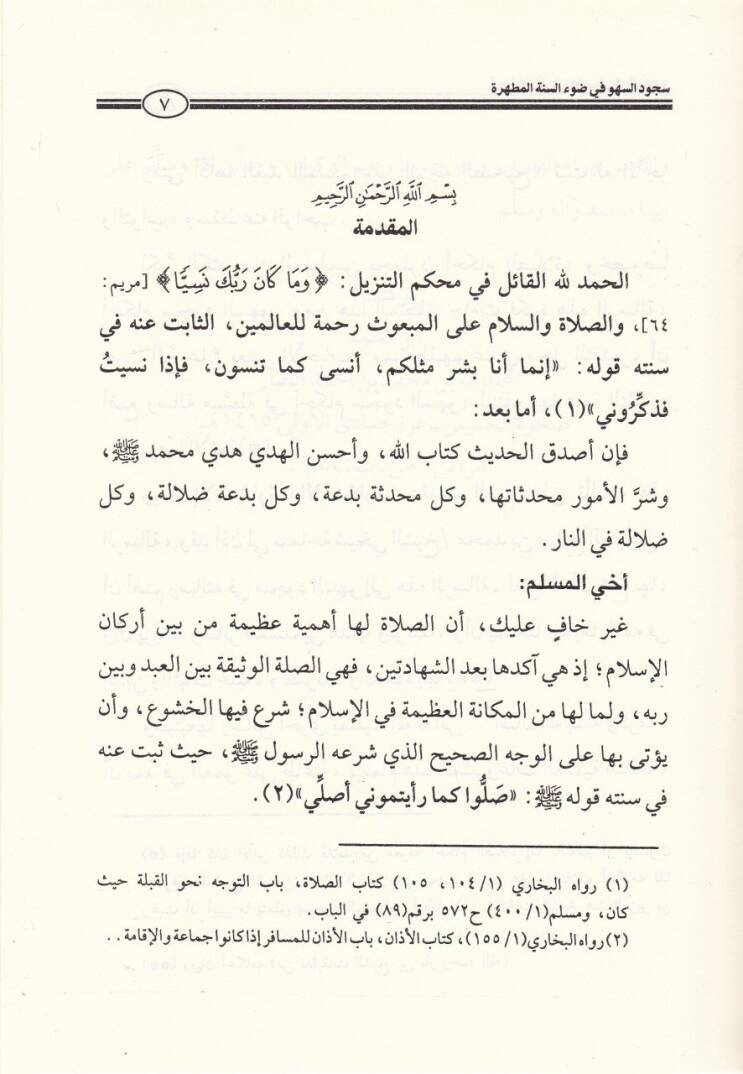 سجود السهو في ضوء السنة المطهرة
٧
بِسْمِ اللَّهِ الرَّحْمَٰنِ الرَّحِيمِ
المقدمة
الحمد لله القائل في محكم التنزيل: ﴿وَمَا كَانَ رَبُّكَ نَسِيًّا﴾ [مريم:
٦٤]، والصلاة والسلام على المبعوث رحمة للعالمين، الثابت عنه في
سنته قوله: «إنما أنا بشر مثلكم، أنسى كما تنسون، فإذا نسيتُ
فذكِّرُوني»(١)، أما بعد:
فإن أصدق الحديث كتاب الله، وأحسن الهدي هدي محمد ﷺ،
وشرَّ الأمور محدثاتها، وكل محدثة بدعة، وكل بدعة ضلالة، وكل
ضلالة في النار.
أخي المسلم:
غير خافٍ عليك، أن الصلاة لها أهمية عظيمة من بين أركان
الإسلام؛ إذ هي آكدها بعد الشهادتين، فهي الصلة الوثيقة بين العبد وبين
ربه، ولما لها من المكانة العظيمة في الإسلام؛ شرع فيها الخشوع، وأن
يؤتى بها على الوجه الصحيح الذي شرعه الرسول ﷺ، حيث ثبت عنه
في سنته قوله ﷺ: «صَلُّوا كما رأيتموني أصلِّي»(٢).
(١) رواه البخاري (١/ ١٠٤، ١٠٥) كتاب الصلاة، باب التوجه نحو القبلة حيث
كان، ومسلم(١/ ٤٠٠) ح٥٧٢ برقم(٨٩) في الباب.
(٢) رواه البخاري(١/ ١٥٥)، كتاب الأذان، باب الأذان للمسافر إذا كانوا جماعة والإقامة..